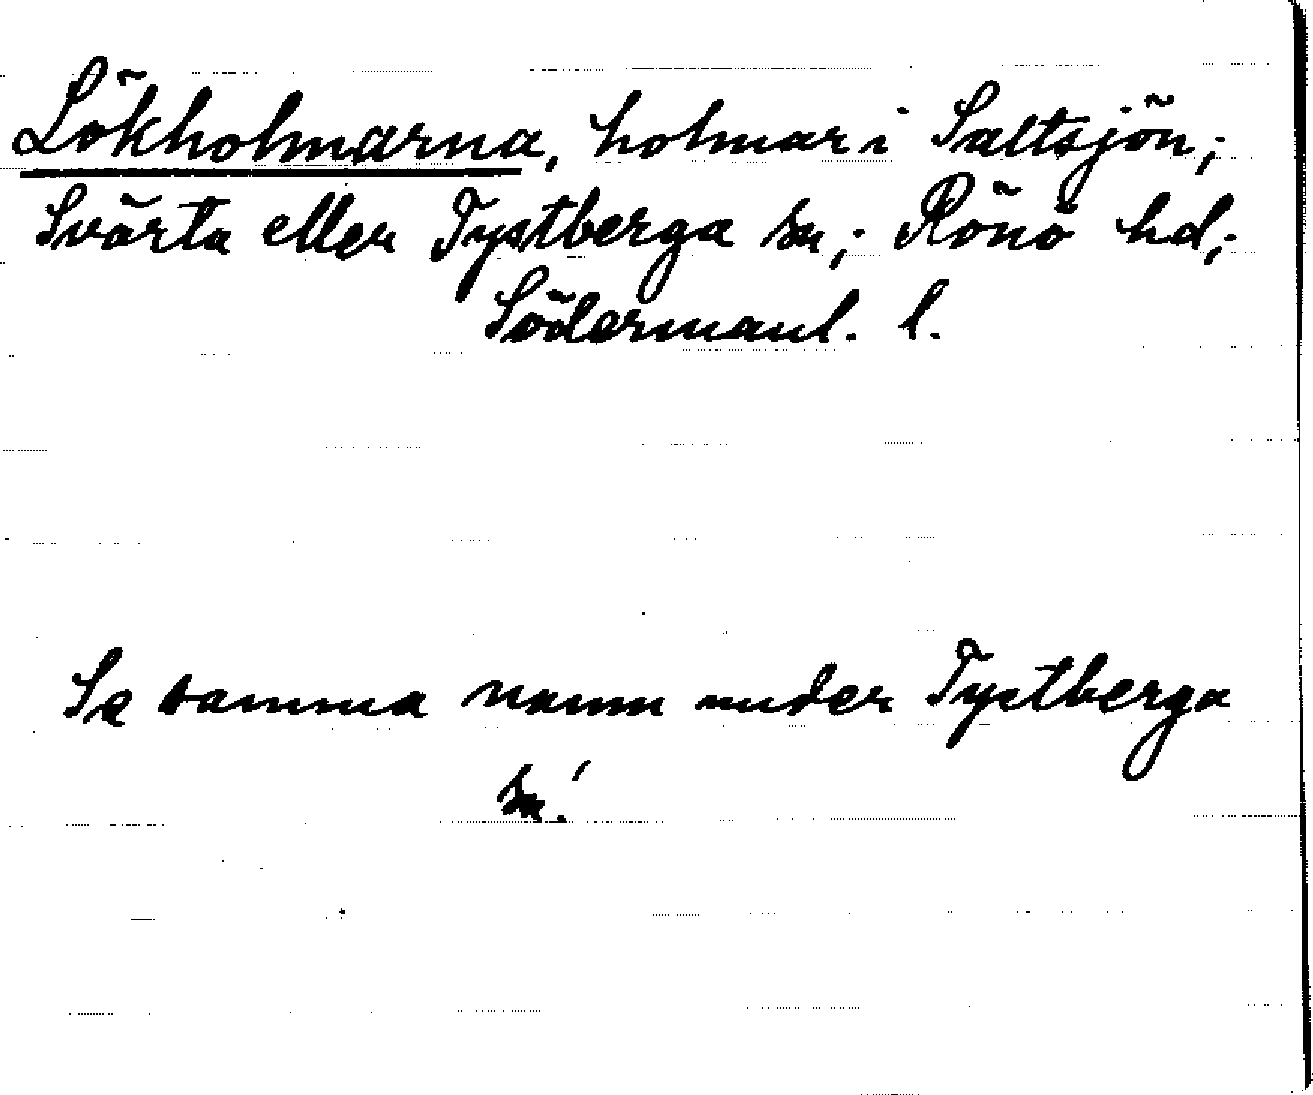 Lökholmarna, holmar i Saltsjön;
Svärta eller Tystberga sn; Rönö hd;
Södermanl. l.
Se samma namn under Tystberga
sn!